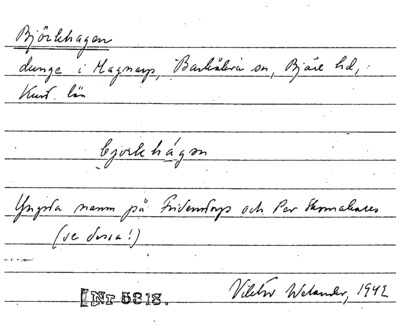 Björkhagen
dunge i Magnarp, Barkåkra sn, Bjäre hd,
Krist. län
bjorkhágen
Yngsta namn på Fridentorps och Per Skomakares
(se dessa!)
[Nr 5818.
Viktor Welander, 1942